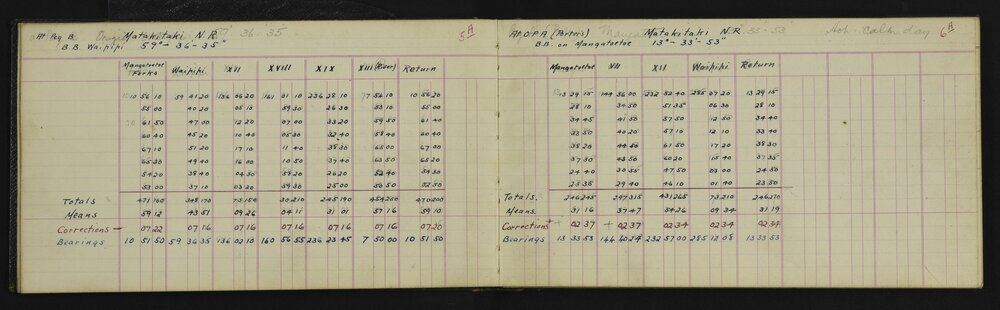 At Peg B. Matakitaki N.R. 36-35 5A
B.B. Waipipi 59°-36-35"
Mangatoetoe Forks Waipipi XVI XVIII XIX XIII (River) Return
10 56 10 59 41 20 136 06 20 161 01 10 236 28 10 7 56 10 10 56 20
55 00 40 20 05 10 59 30 26 30 53 10 55 00
61 50 47 00 12 20 07 00 33 20 59 50 61 40
60 40 45 20 10 40 05 30 32 40 58 40 60 40
67 10 51 20 17 10 11 40 38 30 65 00 67 00
65 30 49 40 16 00 10 50 37 40 63 50 65 20
54 20 38 40 04 30 59 20 26 20 52 40 54 30
53 00 37 10 03 20 58 30 25 00 50 50 52 50
Totals 471 160 348 170 73 150 30 210 245 190 454 250 470 200
Means 59 12 43 51 09 26 04 11 31 01 57 16 59 10
Corrections - 07 22 07 16 07 16 07 16 07 16 07 16 07 20
Bearings 10 51 50 59 36 35 136 02 10 160 56 55 236 23 45 7 50 00 10 51 50
At O.P.A. (Portvis) Matakitaki N.R. 33-53 Hot calm day 6A
B.B. on Mangatoetoe 13°-33'-53"
Mangatoetoe VII XII Waipipi Return
13 29 15 144 36 00 232 52 40 285 07 20 13 29 15
28 10 34 50 51 35 06 30 28 10
34 45 41 50 57 50 12 50 34 40
33 50 40 20 57 10 12 10 33 40
38 20 44 50 61 50 17 20 38 30
37 30 43 50 60 20 15 40 37 35
24 40 30 55 47 50 03 00 24 50
23 35 29 40 46 10 01 40 23 50
Totals 246 245 297 315 431 265 73 210 246 270
Means 31 16 37 47 54 26 09 34 31 19
Corrections + 02 37 + 02 37 02 34 02 34 02 34
Bearings 13 33 53 144 40 24 232 57 00 285 12 08 13 33 53